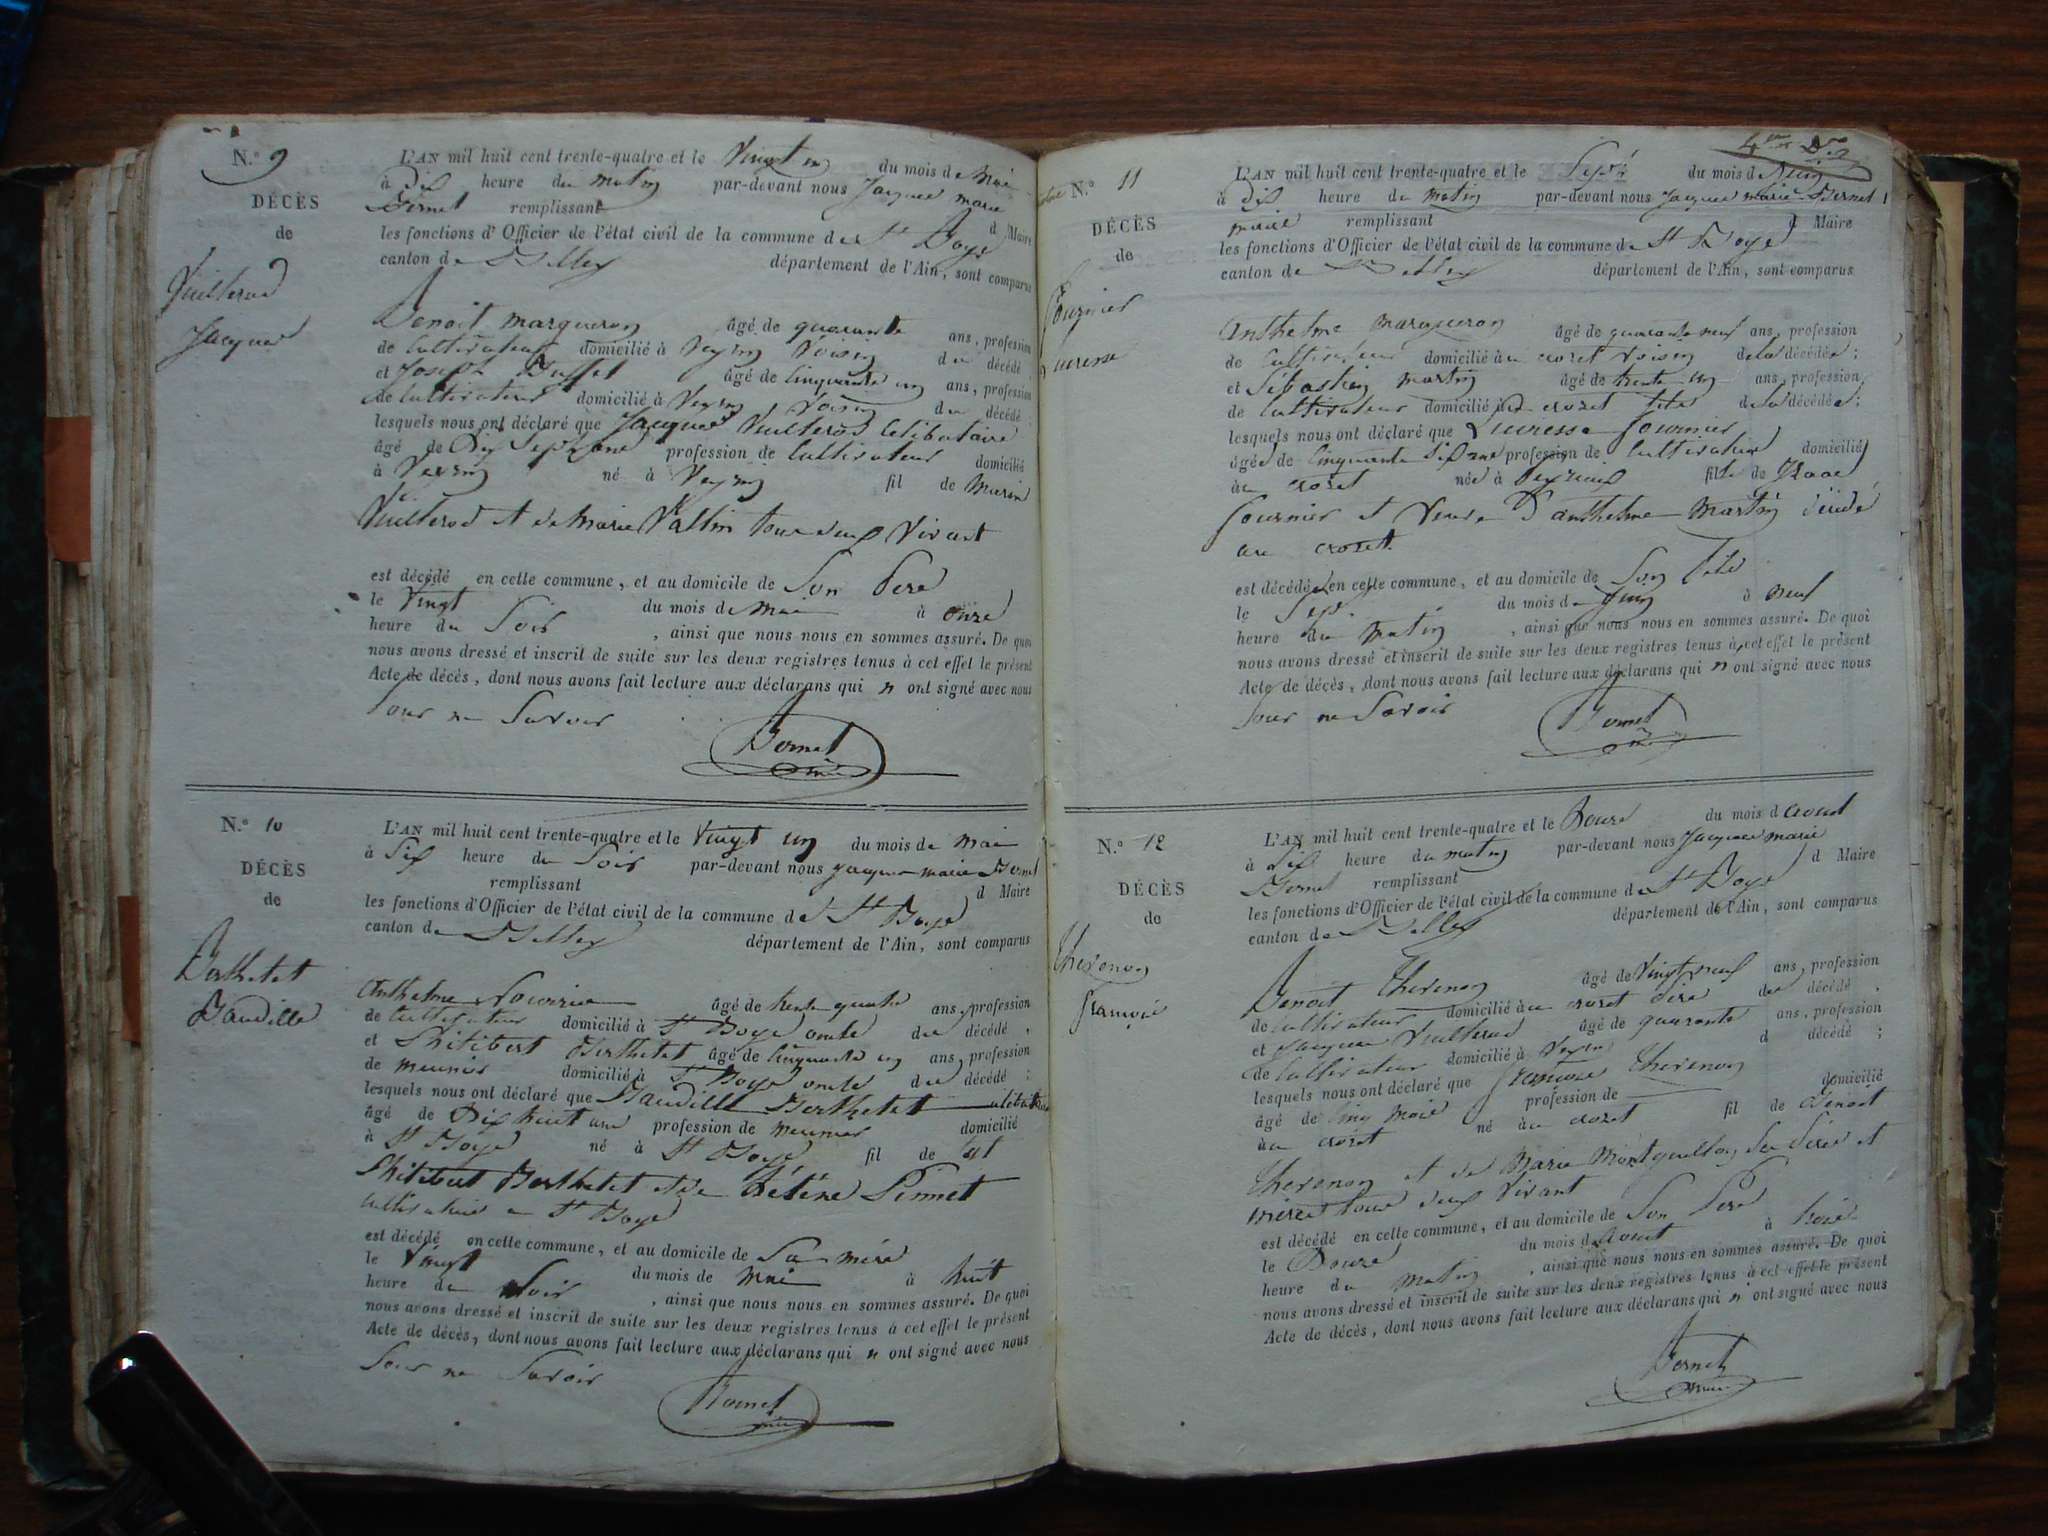 N.o 9
DÉCÈS
de
Vuillerod
Jacques
L'AN mil huit cent trente-quatre et le Vingt un du mois de Mai
à Dix heure du matin par-devant nous Jacques marie
Bernet remplissant d Maire
les fonctions d'Officier de l'état civil de la commune de St Boys
canton de Belley département de l'Ain, sont comparus
Benoit Margueron âgé de quarante ans, profession
de Cultivateur domicilié à Veyrin Voisin du décédé
et Joseph Buffet âgé de Cinquante un ans, profession
de Cultivateur domicilié à Veyrin Voisin du décédé
lesquels nous ont déclaré que Jacques Vuillerod Célibataire
âgé de Dix Sept ans profession de Cultivateur domicilié
à Veyrin né à Veyrin fil de Marin
Vuillerod et de Marie Vallin tous deux Vivant
est décédé en cette commune, et au domicile de Son Pere
le Vingt du mois de Mai à onze
heure du Soir, ainsi que nous nous en sommes assuré. De quoi
nous avons dressé et inscrit de suite sur les deux registres tenus à cet effet le présent
Acte de décès, dont nous avons fait lecture aux déclarans qui n ont signé avec nous
pour ne Savoir
Bernet
N.o 10
DÉCÈS
de
Berthelet
Baudille
L'AN mil huit cent trente-quatre et le Vingt un du mois de Mai
à Six heure du Soir par-devant nous jacques marie Bernet
remplissant d Maire
les fonctions d'Officier de l'état civil de la commune de St Boys
canton de Belley département de l'Ain, sont comparus
Anthelme âgé de trente quatre ans, profession
de Cultivateur domicilié à St Boys oncle du décédé,
et Philibert Berthelet âgé de Cinquante un ans, profession
de meunier domicilié à St Boys oncle du décédé;
lesquels nous ont déclaré que Baudille Berthelet célibataire
âgé de Dix huit ans profession de meunier domicilié
à St Boys né à St Boys fil de
Philibert Berthelet et de Hélène Pinnet
Cultivateur a St Boys
est décédé en cette commune, et au domicile de Sa mère
le Vingt du mois de Mai à huit
heure du Soir, ainsi que nous nous en sommes assuré. De quoi
nous avons dressé et inscrit de suite sur les deux registres tenus à cet effet le présent
Acte de décès, dont nous avons fait lecture aux déclarans qui n ont signé avec nous
pour ne Savoir
Bernet
N.o 11
DÉCÈS
de
Fournier
L'AN mil huit cent trente-quatre et le Sept du mois de Juin
à Dix heure du matin par-devant nous Jacques marie Bernet
maire remplissant d Maire
les fonctions d'Officier de l'état civil de la commune de St Boys
canton de Belley département de l'Ain, sont comparus
Anthelme Margueron âgé de quarante neuf ans, profession
de Cultivateur domicilié au crozet Voisin de la décédée;
et Sébastien Martin âgé de trente un ans, profession
de Cultivateur domicilié au crozet fils de la décédée;
lesquels nous ont déclaré que Fournier
âgée de Cinquante Six ans profession de Cultivateur domicilié
au crozet née à Peyrieu fille de Isaac
Fournier et Veuve D'anthelme Martin décédé
au crozet.
est décédée en cette commune, et au domicile de Son
le Sept du mois de Juin à neuf
heure du Matin, ainsi que nous nous en sommes assuré. De quoi
nous avons dressé et inscrit de suite sur les deux registres tenus à cet effet le présent
Acte de décès, dont nous avons fait lecture aux déclarans qui n ont signé avec nous
pour ne Savoir
Bernet
N.o 12
DÉCÈS
de
Thevenon
François
L'AN mil huit cent trente-quatre et le Douze du mois d'aout
à Dix heure du matin par-devant nous Jacques marie
Bernet remplissant d Maire
les fonctions d'Officier de l'état civil de la commune de St Boys
canton de Belley département de l'Ain, sont comparus
Benoit Thevenon âgé de Vingt neuf ans, profession
de Cultivateur domicilié au crozet Père du décédé,
et Jacques Vuillerod âgé de quarante ans, profession
de Cultivateur domicilié à Veyrin d décédé;
lesquels nous ont déclaré que François Thevenon
âgé de Cinq mois profession de domicilié
au crozet né au crozet fil de Benoit
Thevenon et de Marie Ses Père et
mère tous deux Vivant
est décédé en cette commune, et au domicile de Son Pere
le Douze du mois d'aout à trois
heure du Matin, ainsi que nous nous en sommes assuré. De quoi
nous avons dressé et inscrit de suite sur les deux registres tenus à cet effet le présent
Acte de décès, dont nous avons fait lecture aux déclarans qui n ont signé avec nous
Bernet